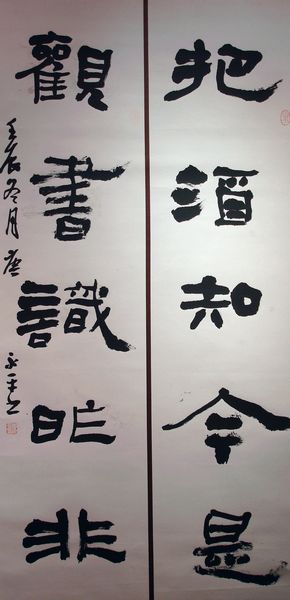 把酒知今是
觀書識昨非
壬辰冬月